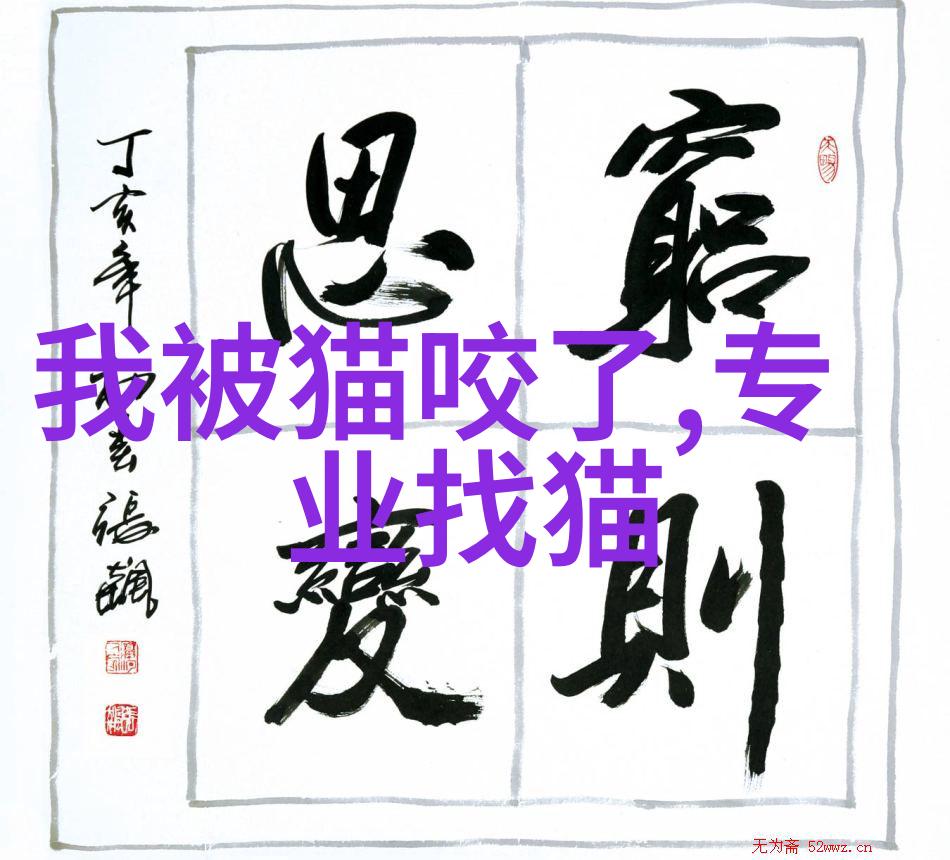 窮則
思變
丁亥年
張飆
我被猫咬了,专
业找猫
无为斋 52wwz.cn